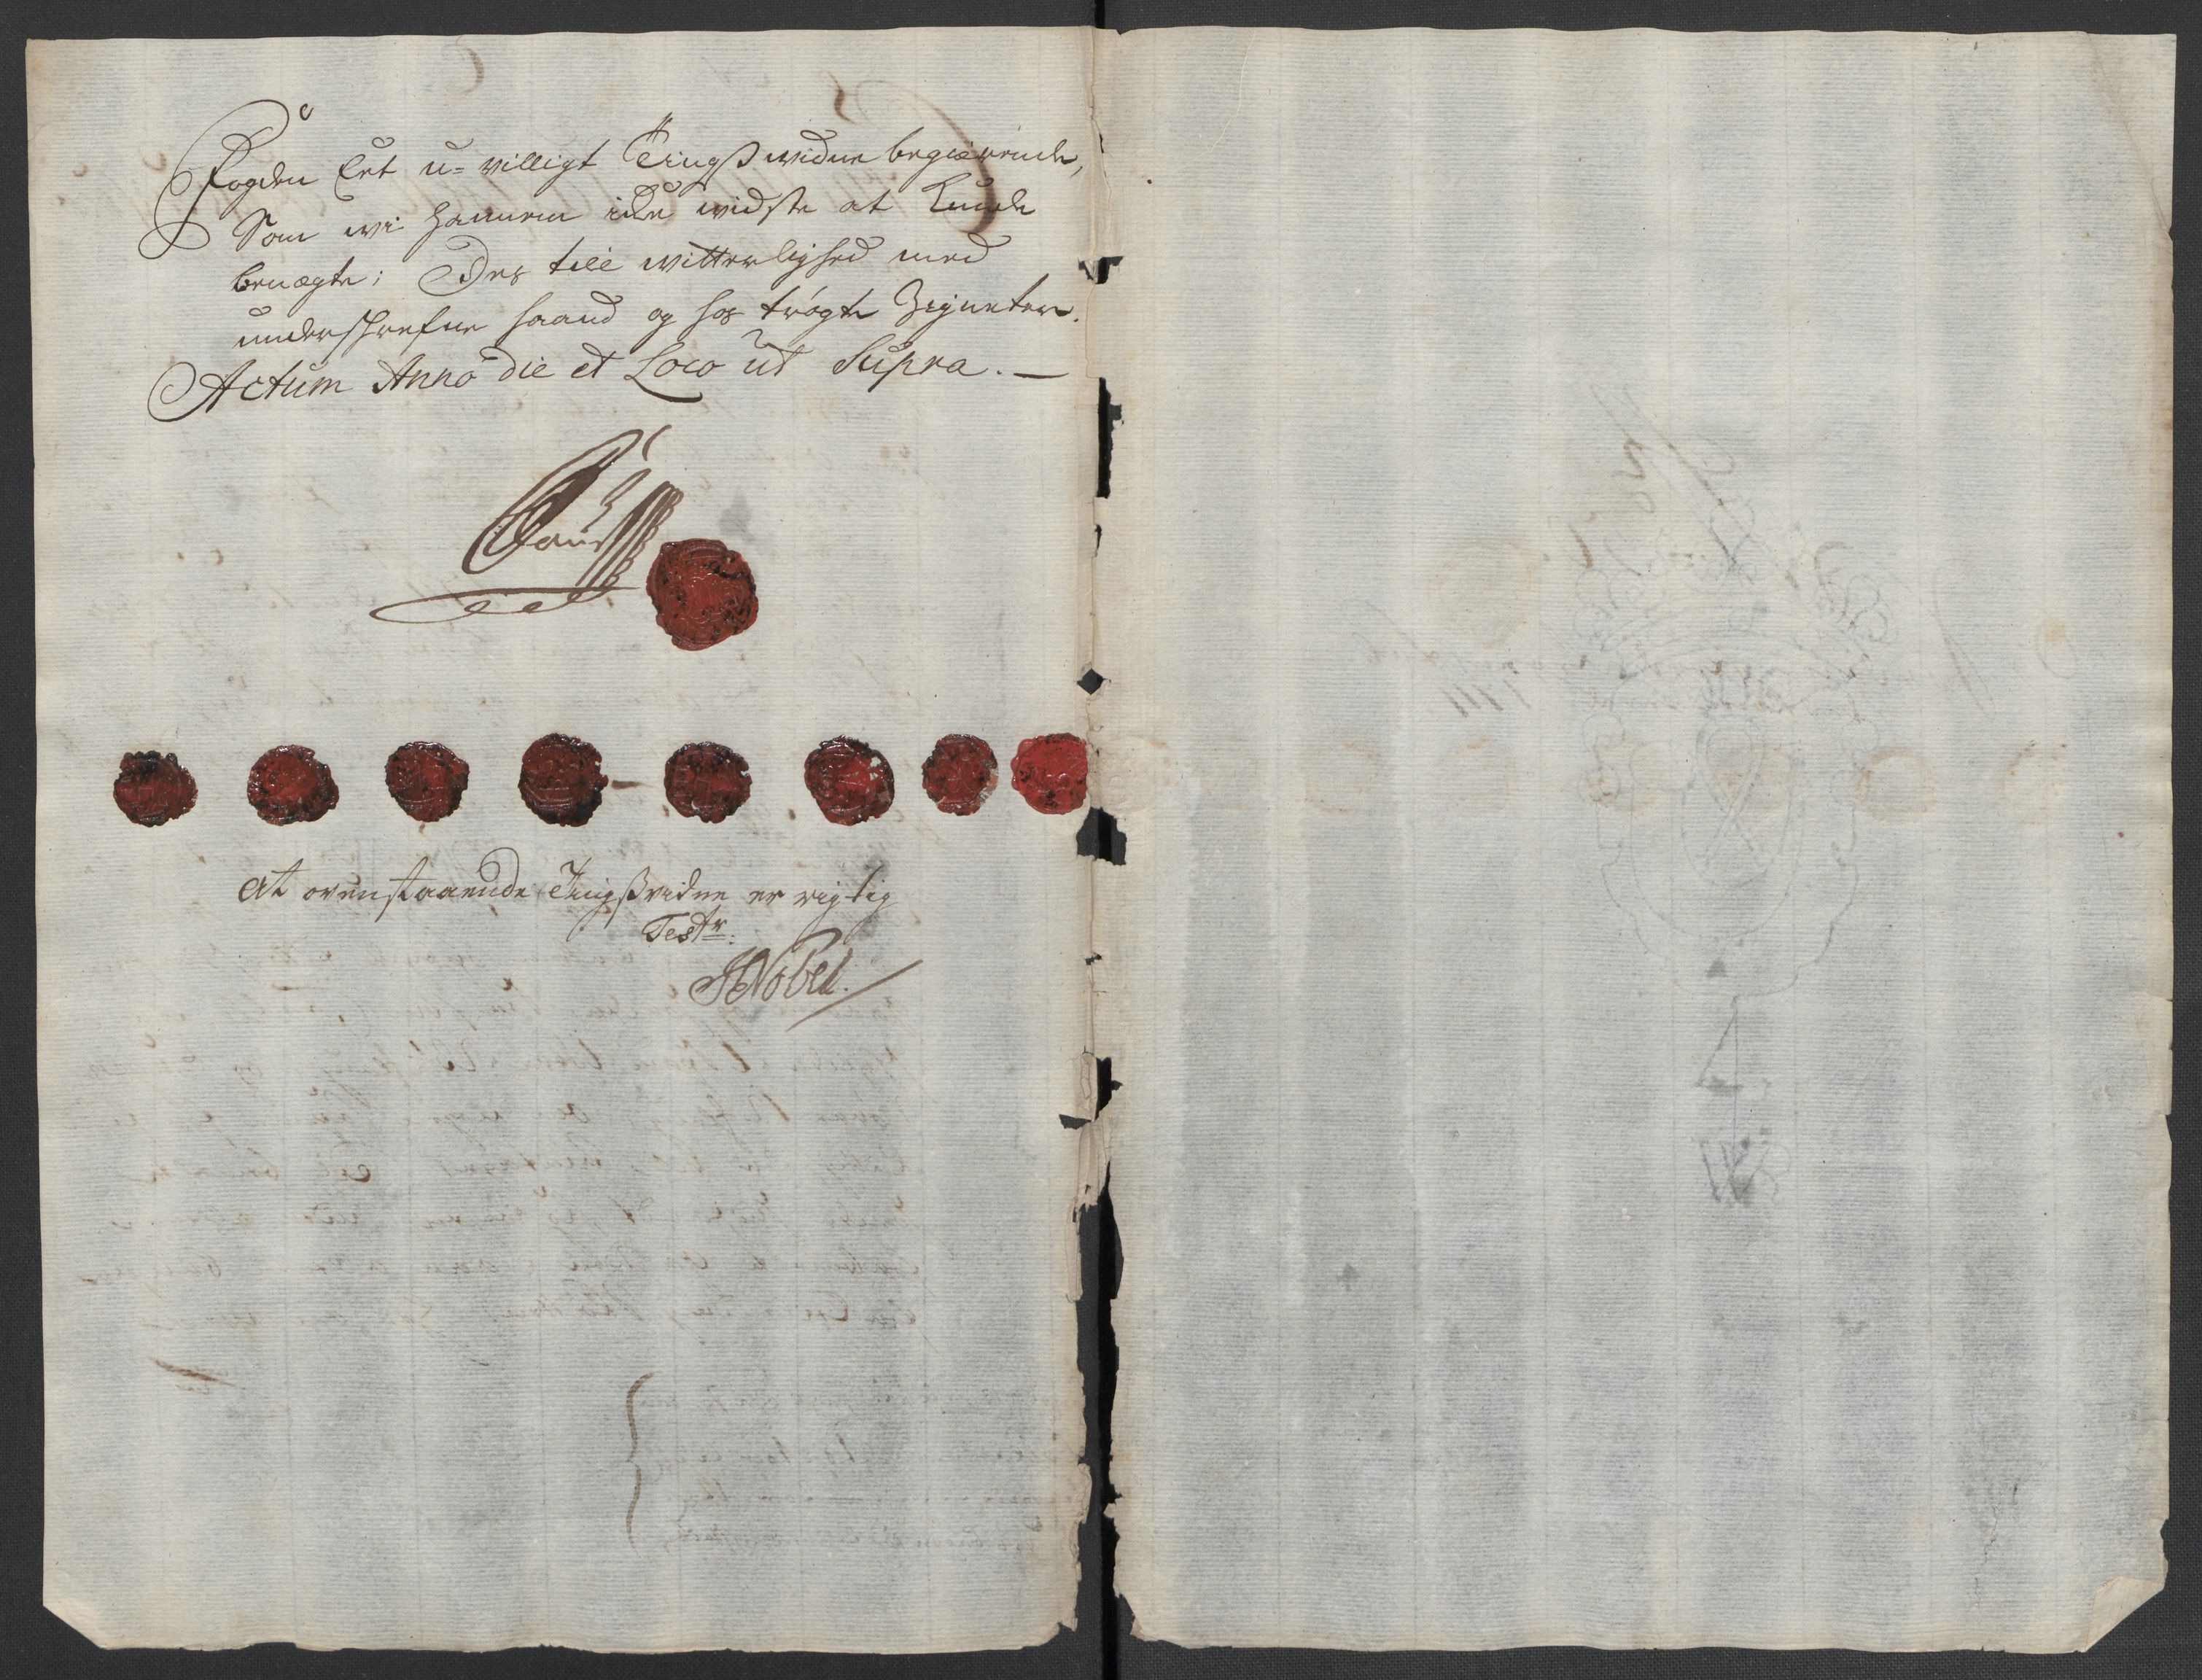 Fogden Eet u-villigt Tingsswidne begierende,
Som wi hannem icke widste at kunde
benægte; Des till witterlighed med
underschrefne haand og hos trøgte Zigneter.
Actum Anno die et Loco ut Supra. —
At ovenstaaende Tingsvidne er rigtig
Testr:
Nobel.